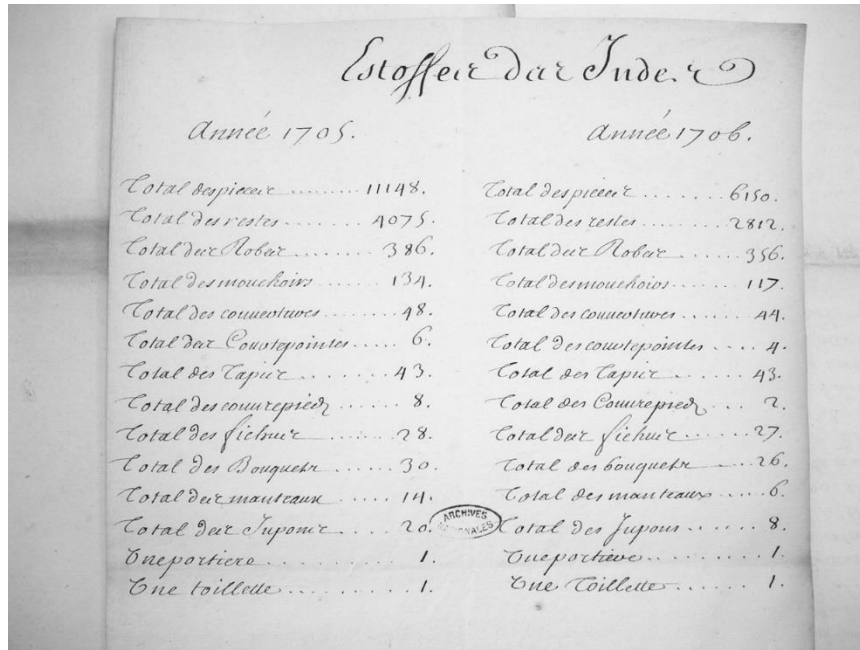 Estoffes des Indes
Année 1705.
Total des pieces ........ 11148.
Total des restes ........ 4075.
Total des Robes ........ 386.
Total des mouchoirs ..... 134.
Total des couvertures ..... 48.
Total des Courtepointes ..... 6.
Total des Tapis ........ 43.
Total des couvrepiedz ..... 8.
Total des fichus ....... 28.
Total des Bouquets ..... 30.
Total des manteaux ..... 14.
Total des Jupons ...... 20.
Une portiere .......... 1.
Une toillette .......... 1.
Année 1706.
Total des pieces ....... 6150.
Total des restes ....... 2812.
Total des Robes ....... 356.
Total des mouchoirs ..... 117.
Total des couvertures ..... 44.
Total des courtepointes .... 4.
Total des Tapis ...... 43.
Total des Couvrepiedz ... 2.
Total des fichus ...... 27.
Total des bouquets .... 26.
Total des manteaux ..... 6.
Total des Jupons ...... 8.
Une portiere ......... 1.
Une Toillette ........ 1.
ARCHIVES
NATIONALES